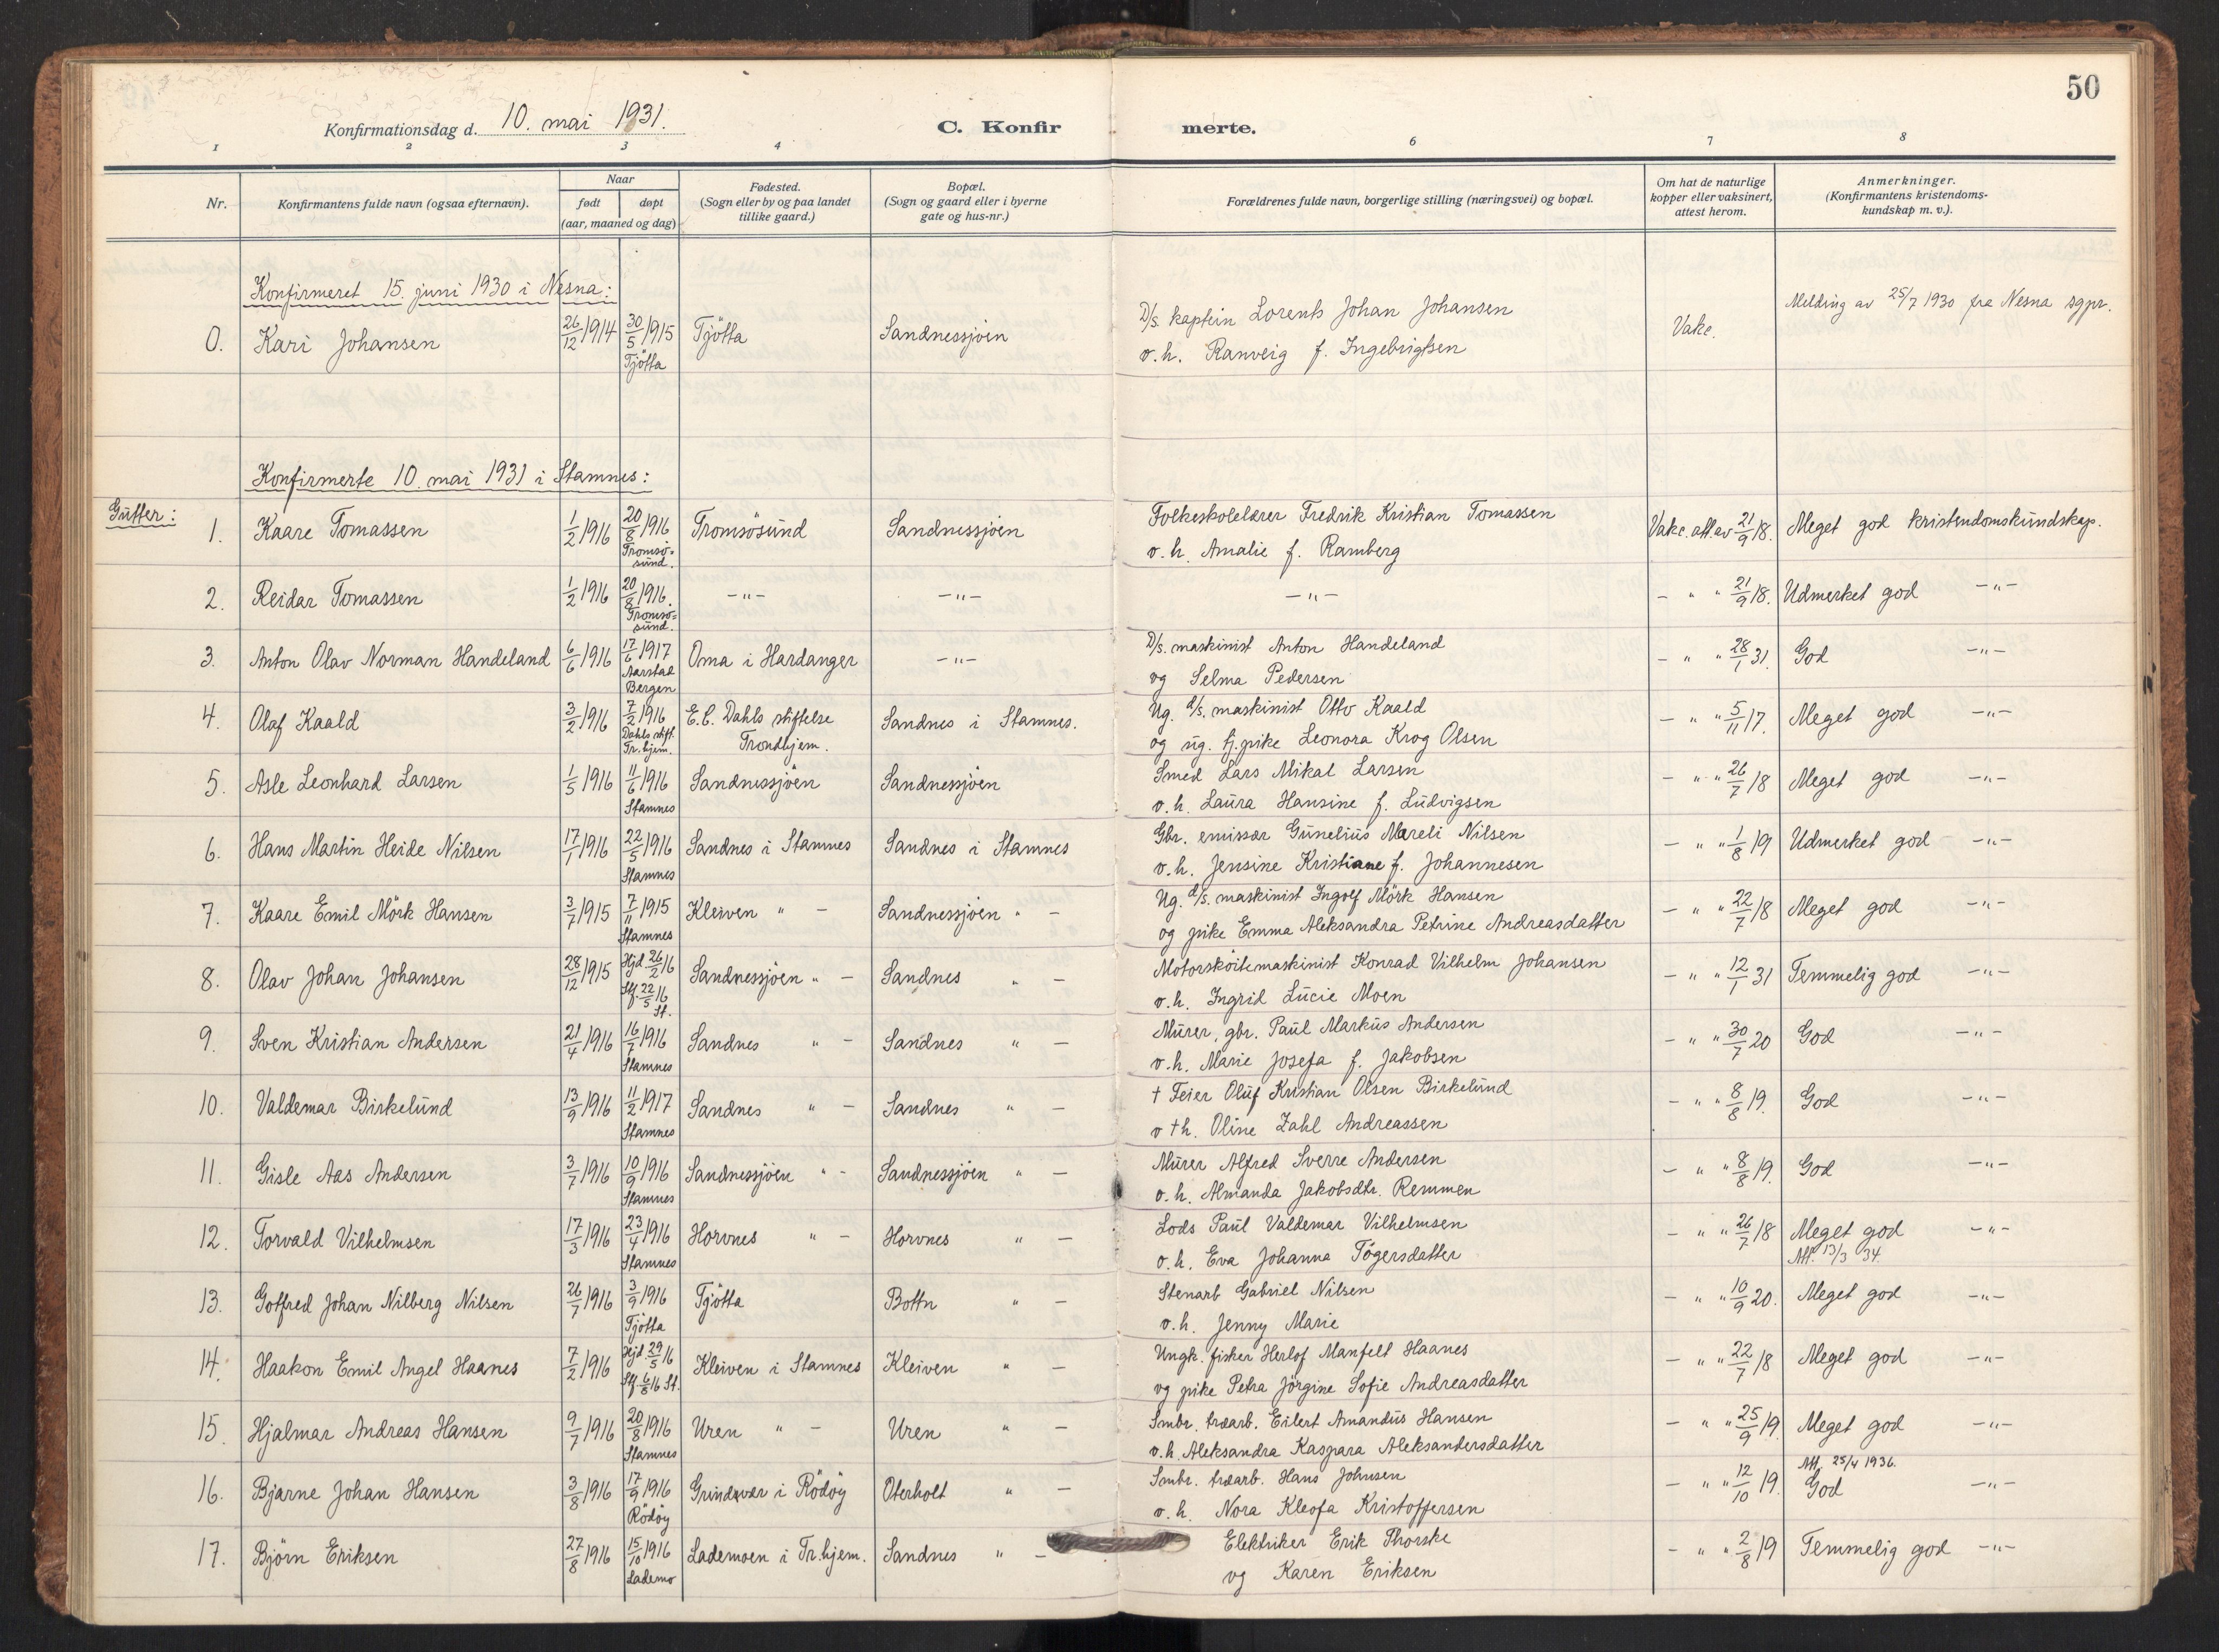 50
Konfirmationsdag d. 10. mai 1931.
C. Konfir merte.
1 2 3 4 6 7 8
Nr.
Konfirmantens fulde navn (ogsaa efternavn).
Naar
født døpt
(aar, maaned og dag)
Fødested.
(Sogn eller by og paa landet
tillike gaard.)
Bopæl.
(Sogn og gaard eller i byerne
gate og hus-nr.)
Forældrenes fulde navn, borgerlige stilling (næringsvei) og bopæl.
Om hat de naturlige
kopper eller vaksinert,
attest herom.
Anmerkninger.
(Konfirmantens kristendoms-
kundskap m. v.).
Konfirmeret 15. juni 1930 i Nesna:
0. Kari Johansen 26/12 1914 30/5 1915 Tjötta Sandnessjøen D/s. kaptein Lorents Johan Johansen Vakc. Melding av 25/7 1930 fra Nesna sgpr.
Tjötta o.h. Ranveig f. Ingebrigtsen
Konfirmerte 10. mai 1931 i Stamnes:
Gutter:
1. Kaare Tomassen 1/2 1916 20/8 1916 Tromsösund Sandnessjöen Folkeskolelærer Fredrik Kristian Tomassen Vakc. att. av 21/9 18. Meget god kristendomskundskap.
Tromsö=
sund. o.h. Amalie f. Ramberg
2. Reidar Tomassen 1/2 1916 20/8 1916. -"- -"- -"- - " " 21/9 18. Udmerket god -"-
Tromsö=
sund.
3. Anton Olav Norman Handeland 6/6 1916 17/6 1917 Oma i Hardanger -"- D/s. maskinist Anton Handeland - " " 28/1 31. God -"-
Aarstad
Bergen og Selma Pedersen
4. Olaf Kaald 3/2 1916 7/2 1916 E.C. Dahls stiftelse Sandnes i Stamnes. Ug. d/s. maskinist Otto Kaald - " " 5/11 17. Meget god -"-
Dahls stift.
Tr.hjem. Trondhjem. og ug. tj.pike Leonora Krog Olsen
5. Asle Leonhard Larsen 1/5 1916 11/6 1916 Sandnessjöen Sandnessjöen Smed Lars Mikal Larsen - " " 26/7 18 Meget god -"-
Stamnes o.h. Laura Hansine f. Ludvigsen
6. Hans Martin Heide Nilsen 17/1 1916 22/5 1916 Sandnes i Stamnes Sandnes i Stamnes Gbr. emissær Gunelius Mareli Nilsen - " " 1/8 19 Udmerket god -"-
Stamnes o.h. Jensine Kristiane f. Johannesen
7. Kaare Emil Mörk Hansen 3/7 1915 7/11 1915 Kleiven " - Sandnessjöen " - Ug. d/s. maskinist Ingolf Mörk Hansen - " " 22/7 18 Meget god -"-
Stamnes og pike Emma Aleksandra Petrine Andreasdatter
8. Olav Johan Johansen 28/12 1915 Hjd 26/2 16 Sandnessjöen " - Sandnes " - Motorsköitemaskinist Konrad Vilhelm Johansen - " " 12/1 31 Temmelig god -"-
Stf. 22/5 16
St. o.h. Ingrid Lucie Moen
9. Sven Kristian Andersen 21/4 1916 16/7 1916 Sandnes " - Sandnes " - Murer, gbr. Paul Markus Andersen - " " 30/7 20 God -"-
Stamnes o.h. Marie Josefa f. Jakobsen
10. Valdemar Birkelund 13/9 1916 11/2 1917 Sandnes " - Sandnes " - † Feier Oluf Kristian Olsen Birkelund - " " 8/8 19. God -"-
Stamnes o † h. Oline Zahl Andreassen
11. Gisle Aas Andersen 3/7 1916 10/9 1916 Sandnessjöen " - Sandnessjöen " - Murer Alfred Sverre Andersen - " " 8/8 19. God -"-
Stamnes o.h. Almanda Jakobsdtr. Remmen
12. Torvald Vilhelmsen 17/3 1916 23/4 1916 Horvnes " - Horvnes " - Lods Paul Valdemar Vilhelmsen - " " 26/7 18 Meget god -"-
Stamnes o.h. Eva Johanna Tögersdatter Att. 13/3 34.
13. Gotfred Johan Nilberg Nilsen 26/7 1916 3/9 1916 Tjötta Bottn " - Stenarb Gabriel Nilsen - " " 10/9 20. Meget god -"-
Tjötta o.h. Jenny Marie
14. Haakon Emil Angel Haanes 7/2 1916 Hjd 29/5 16 Kleiven i Stamnes Kleiven " - Ungk. fisker Herlof Manfelt Haanes - " " 22/7 18 Meget god -"-
Stf. 6/8 16 St. og pike Petra Jörgine Sofie Andreasdatter
15. Hjalmar Andreas Hansen 9/7 1916 20/8 1916 Uren " - Uren " - Smbr. træarb. Eilert Amandus Hansen - " " 25/9 19. Meget god -"-
Stamnes o.h. Aleksandra Kaspara Aleksandersdatter
Att. 25/4 1936.
16. Bjarne Johan Hansen 3/8 1916 17/9 1916 Grindvær i Rödöy Oterholt " - Smbr. træarb. Hans Johnsen - " " 12/10 19. God -"-
Rödöy o.h. Nora Kleofa Kristoffersen
17. Björn Eriksen 27/8 1916 15/10 1916 Lademoen i Tr.hjem. Sandnes " - Elektriker Erik Thorske - " " 2/8 19 Temmelig god -"-
Lademo og Karen Eriksen